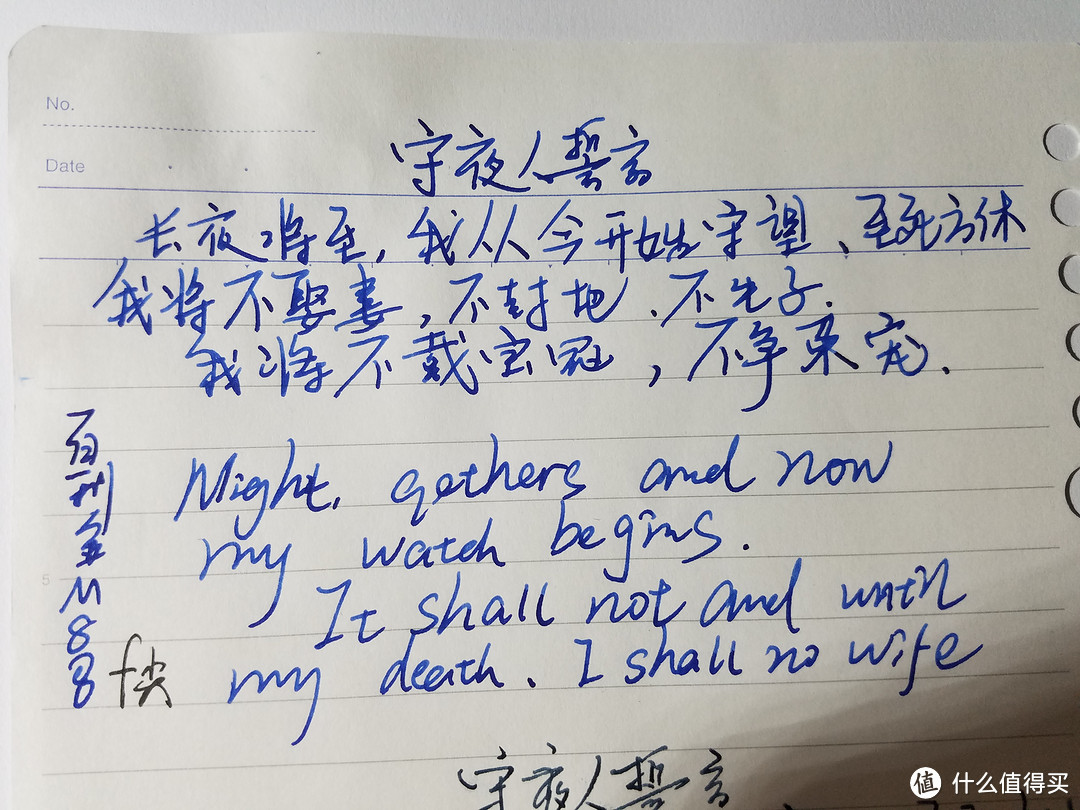 No.
Date
守夜人誓言
长夜将至,我从今开始守望、至死方休
我将不娶妻,不封地、不生子.
我将不戴宝冠,不争荣宠.
Night, gathers and now
my watch begins.
It shall not and until
my death. I shall no wife
5
M
8
8
f尖
守夜人誓言
值 什么值得买